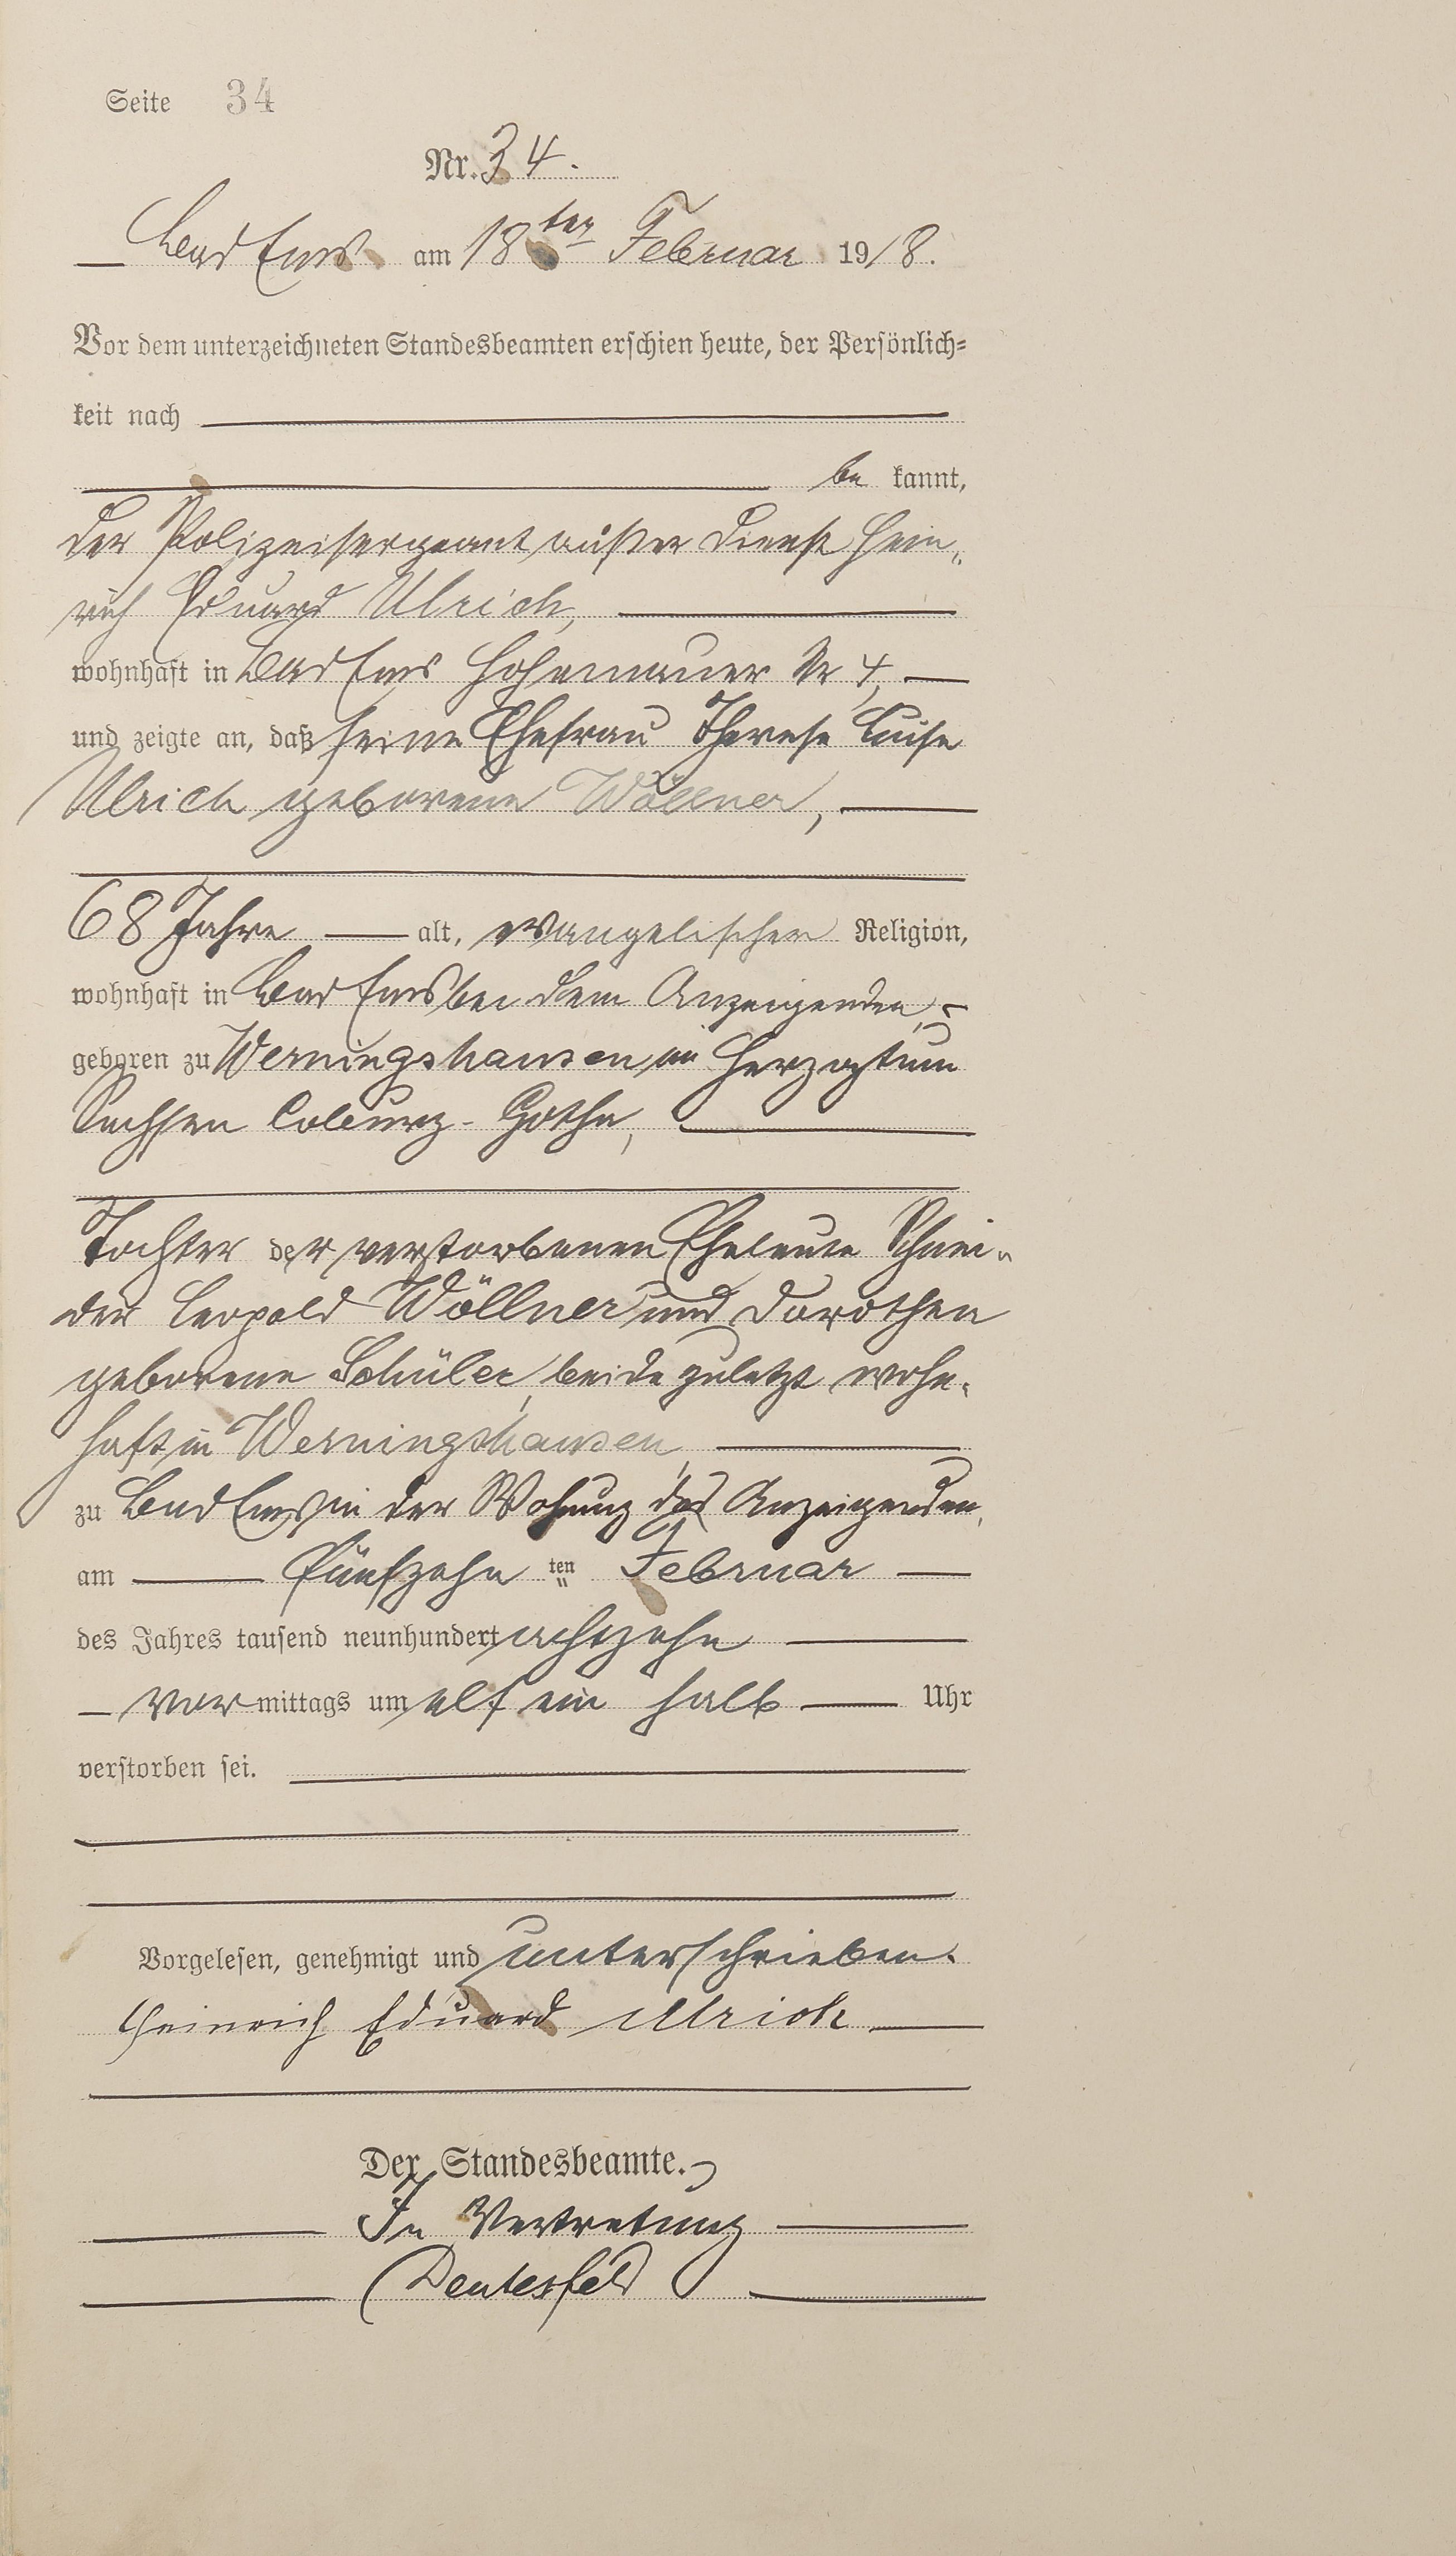 Seite 34
Nr. 34.
Bad Ems am 18ten Februar 1918.
Vor dem unterzeichneten Standesbeamten erschien heute, der Persönlich=
keit nach
be kannt,
der Polizeisergeant außer Dienst Hein„
rich Eduard Ulrich,
wohnhaft in Bad Ems Hohemauer Nr 4,
und zeigte an, daß seine Ehefrau Therese Luise
Ulrich geborene Wöllner,
68 Jahre alt, evangelischer Religion,
wohnhaft in Bad Ems bei dem Anzeigenden,
geboren zu Werningshausen im Herzogtum
Sachsen Coburg-Gotha,
Tochter der verstorbenen Eheleute Schnei-
der Leopold Wöllner und Dorothea
geborene Schüler, beide zuletzt wohn-
haft in Werningshausen,
zu Bad Ems in der Wohnung des Anzeigenden,
am fünfzehn ten Februar
des Jahres tausend neunhundert achtzehn
vor mittags um elf ein halb Uhr
verstorben sei.
Vorgelesen, genehmigt und unterschrieben.
Heinrich Eduard Ulrich
Der Standesbeamte.
In Vertretung